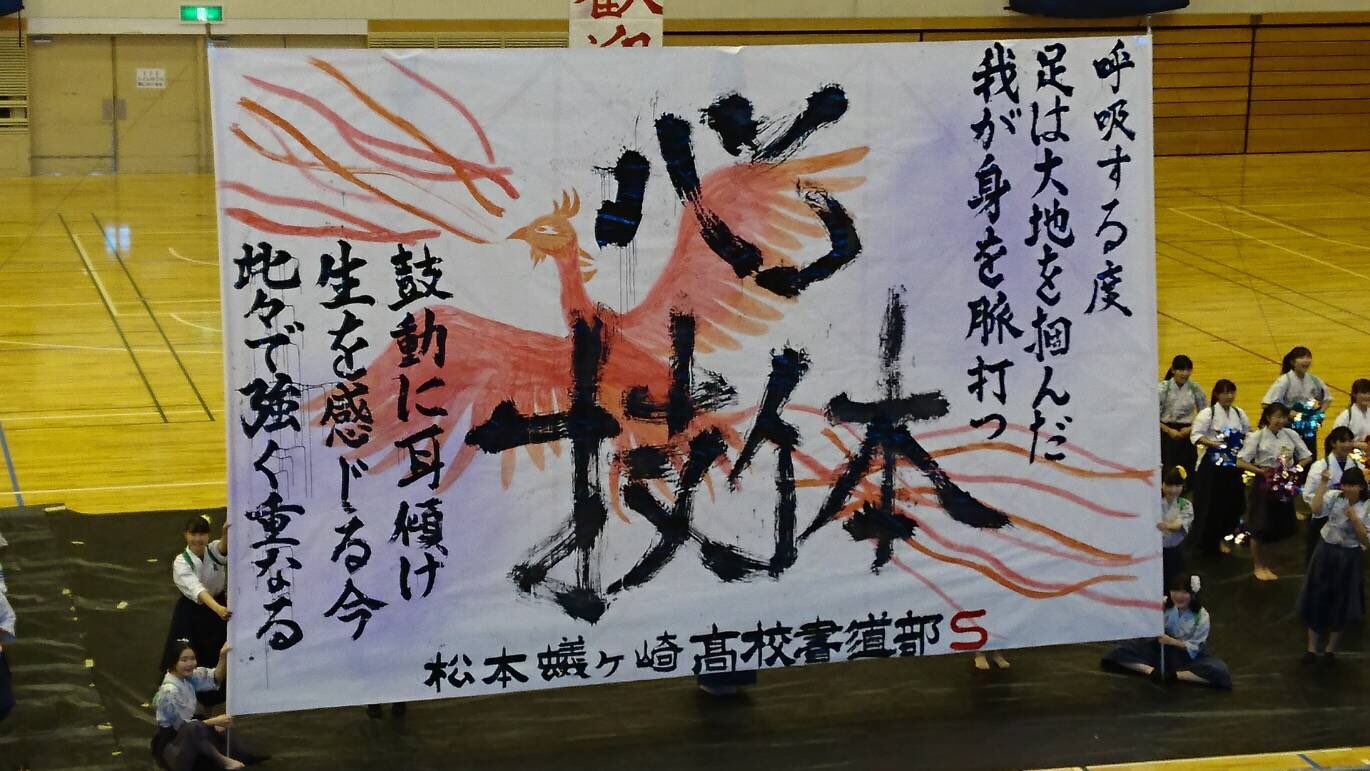 歓迎
呼吸する度
足は大地を掴んだ
我が身を脈打つ
心
技体
鼓動に耳傾け
生を感じる今
此々で強く重なる
松本蟻ヶ崎高校書道部S